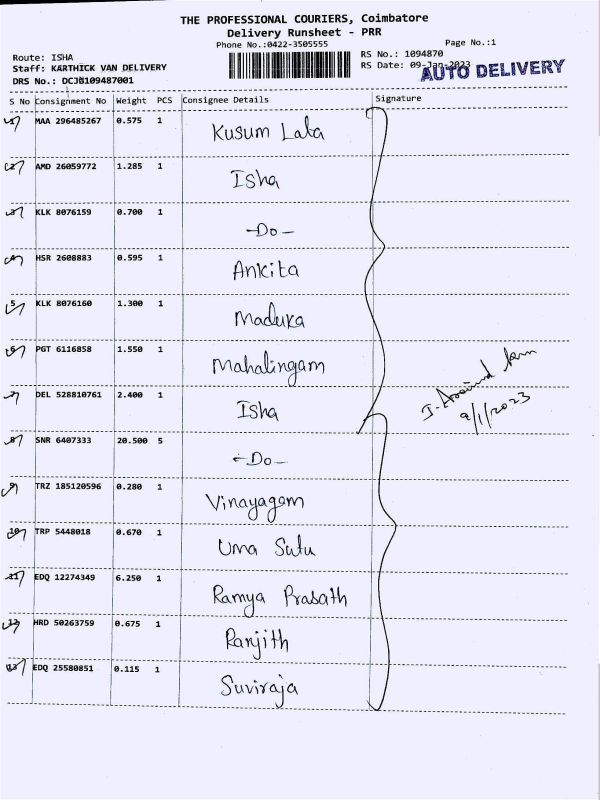 THE PROFESSIONAL COURIERS, Coimbatore
Delivery Runsheet - PRR
Phone No.:0422-3505555
Page No.:1
Route: ISHA
RS No.: 1094870
Staff: KARTHICK VAN DELIVERY
RS Date: 09-Jan-2023
AUTO DELIVERY
DRS No.: DCJ0109487001
S No Consignment No Weight PCS Consignee Details Signature
1 MAA 296485267 0.575 1 Kusum Lata
2 AMD 26059772 1.285 1 Isha
3 KLK 8076159 0.700 1 -Do-
4 HSR 2608883 0.595 1 Ankita
5 KLK 8076160 1.300 1 Maduka
6 PGT 6116858 1.550 1 Mahalingam
7 DEL 528810761 2.400 1 Isha
8 SNR 6407333 20.500 5 -Do-
9 TRZ 185120596 0.280 1 Vinayagam
10 TRP 5448018 0.670 1 Uma Sutu
11 EDQ 12274349 6.250 1 Ramya Prasath
12 HRD 50263759 0.675 1 Ranjith
13 EDQ 25580851 0.115 1 Suviraja
9/1/2023